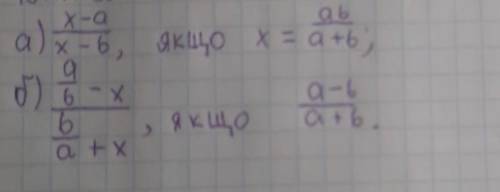 а) (x-a)/(x-b), якщо x = ab/(a+b);
б) (a/b - x)/(b/a + x), якщо (a-b)/(a+b).